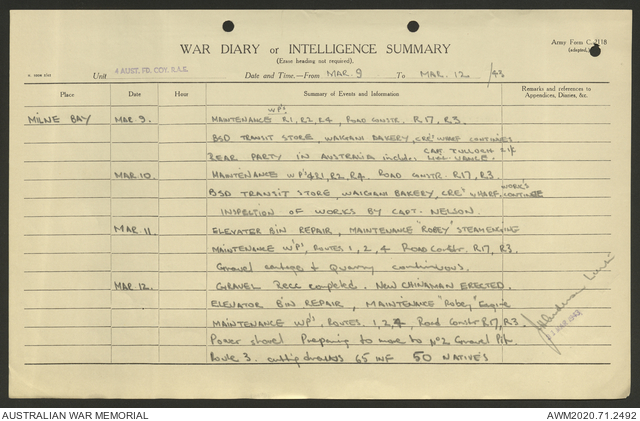 WAR DIARY or INTELLIGENCE SUMMARY
(Erase heading not required).
Army Form C. 2118
(adopted)
Unit 4 AUST. FD. COY. R.A.E. Date and Time.—From MAR. 9 To MAR. 12 /43
Place Date Hour Summary of Events and Information Remarks and references to Appendices, Diaries, &c.
MILNE BAY MAR 9. MAINTENANCE WP's R1, R2, R4, ROAD CONSTR. R17, R3.
BSD TRANSIT STORE, WAIGANI BAKERY, CRE's WHARF CONTINUES
REAR PARTY IN AUSTRALIA includes CAPT. TULLOCH Lieut. VANCE.
MAR. 10. MAINTENANCE WP's R1, R2, R4. ROAD CONSTR. R17, R3.
BSD TRANSIT STORE, WAIGANI BAKERY, CRE's WHARF, WORKS CONTINUE
INSPECTION OF WORKS BY CAPT. NELSON.
MAR. 11. ELEVATER BIN REPAIR, MAINTENANCE "ROBEY" STEAM ENGINE
MAINTENANCE WP's, ROUTES 1, 2, 4 ROAD Constr. R17, R3.
Gravel cartage & Quarry continuous.
MAR. 12. GRAVEL Recce completed. NEW CHINAMAN ERECTED.
ELEVATOR BIN REPAIR, MAINTENANCE "Robey" Engine
MAINTENANCE WP's, ROUTES. 1, 2, 4, Road Constr R17, R3.
Power shovel Preparing to move to No2 Gravel Pit.
Route 3. cutting 65 INF 50 NATIVES
AUSTRALIAN WAR MEMORIAL
AWM2020.71.2492